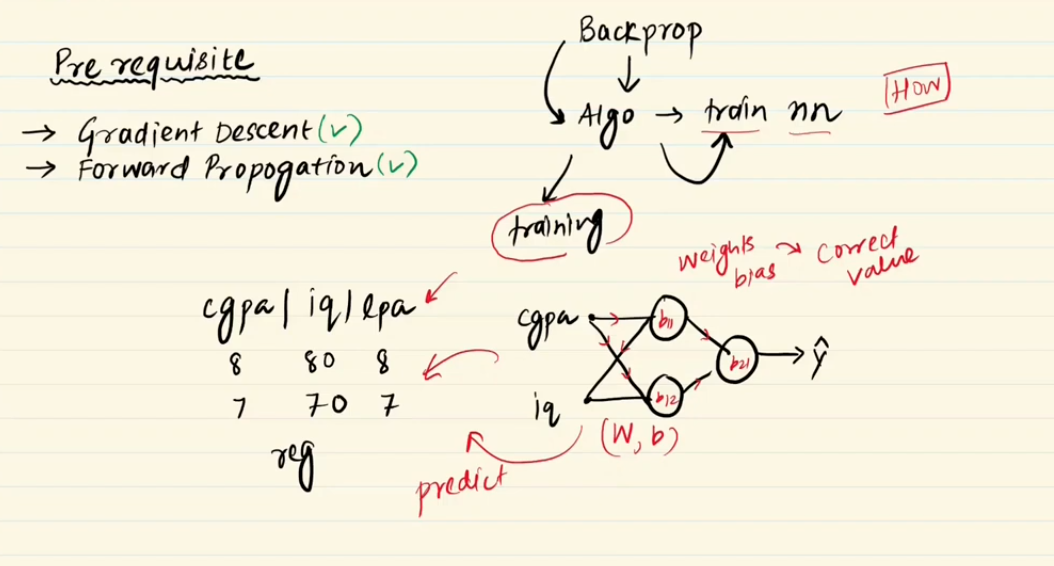 Prerequisite
→ Gradient Descent (✓)
→ Forward Propogation (✓)
Backprop
Algo → train nn
How
training
weights
bias
→ correct
value
cgpa | iq | lpa
8 80 8
7 70 7
reg
cgpa
iq
b11
b12
b21
ŷ
(W, b)
predict